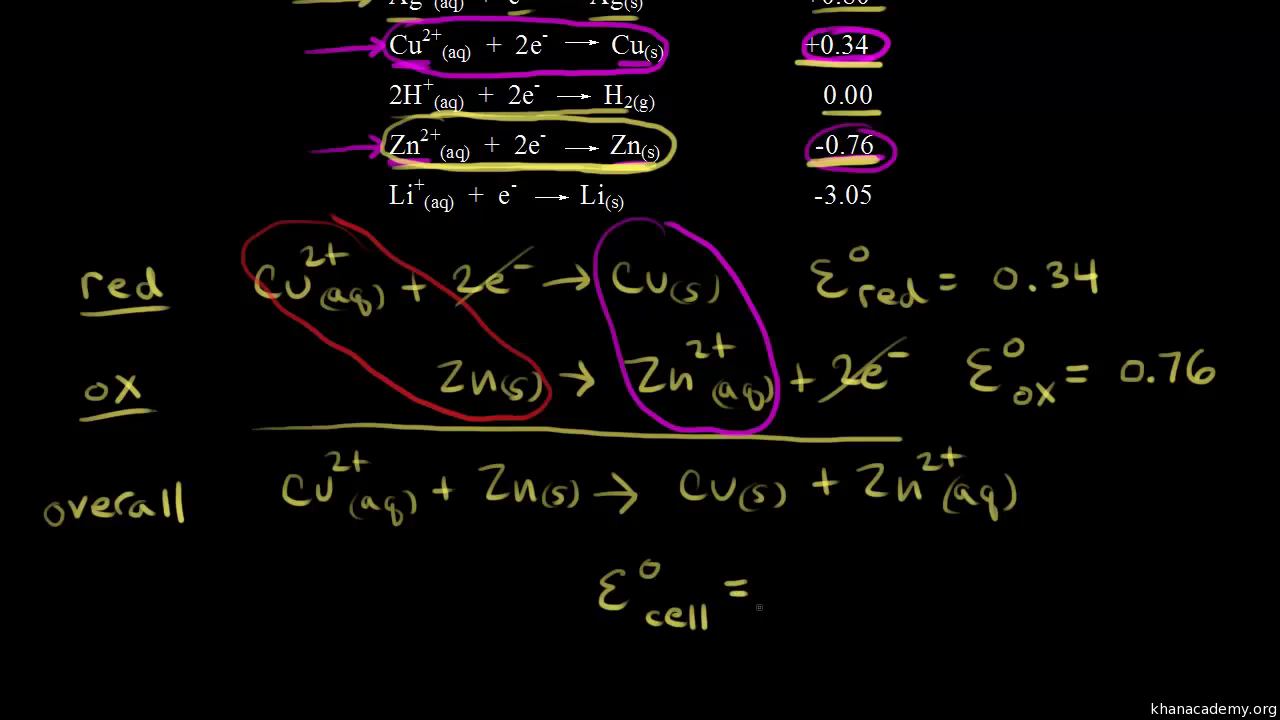 Ag⁺(aq) + e⁻ → Ag(s) +0.80
Cu²⁺(aq) + 2e⁻ → Cu(s) +0.34
2H⁺(aq) + 2e⁻ → H₂(g) 0.00
Zn²⁺(aq) + 2e⁻ → Zn(s) -0.76
Li⁺(aq) + e⁻ → Li(s) -3.05
red Cu²⁺(aq) + 2e⁻ → Cu(s) ε⁰red = 0.34
ox Zn(s) → Zn²⁺(aq) + 2e⁻ ε⁰ox = 0.76
overall Cu²⁺(aq) + Zn(s) → Cu(s) + Zn²⁺(aq)
ε⁰cell =
khanacademy.org